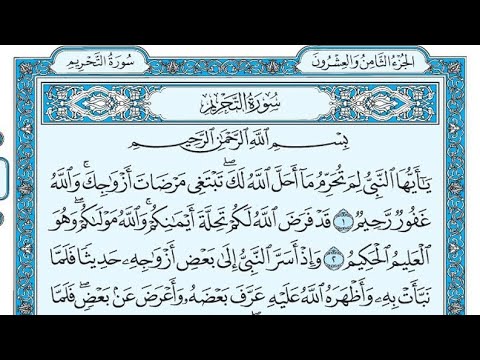 الجُزْءُ الثَّامِنُ وَالْعِشْرُونَ
سُورَةُ التَّحْرِيمِ
سُورَةُ التَّحْرِيمِ
بِسْمِ ٱللَّهِ ٱلرَّحْمَٰنِ ٱلرَّحِيمِ
يَٰٓأَيُّهَا ٱلنَّبِيُّ لِمَ تُحَرِّمُ مَآ أَحَلَّ ٱللَّهُ لَكَۖ تَبْتَغِي مَرْضَاتَ أَزْوَٰجِكَۚ وَٱللَّهُ
غَفُورٌ رَّحِيمٌ ١ قَدْ فَرَضَ ٱللَّهُ لَكُمْ تَحِلَّةَ أَيْمَٰنِكُمْۚ وَٱللَّهُ مَوْلَىٰكُمْۖ وَهُوَ
ٱلْعَلِيمُ ٱلْحَكِيمُ ٢ وَإِذْ أَسَرَّ ٱلنَّبِيُّ إِلَىٰ بَعْضِ أَزْوَٰجِهِۦ حَدِيثًا فَلَمَّا
نَبَّأَتْ بِهِۦ وَأَظْهَرَهُ ٱللَّهُ عَلَيْهِ عَرَّفَ بَعْضَهُۥ وَأَعْرَضَ عَنۢ بَعْضٍۖ فَلَمَّا